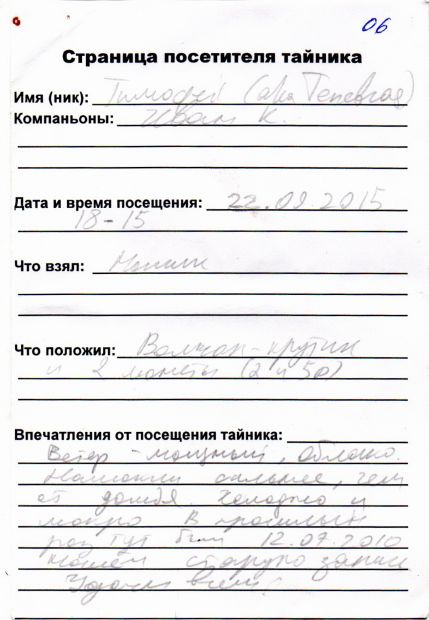 06
Страница посетителя тайника
Имя (ник): Тимофей (aka
Компаньоны: Иван К.
Дата и время посещения: 22.09.2015
18-15
Что взял:
Что положил: Волчок-крутик
и 2 монеты (2 и 50)
Впечатления от посещения тайника:
Ветер - мощный, облако.
Намокли сильнее, чем
от дождя. Холодно и
мокро. В прошлый
раз тут был 12.07.2010
Нашёл старую запись
Удачи всем!